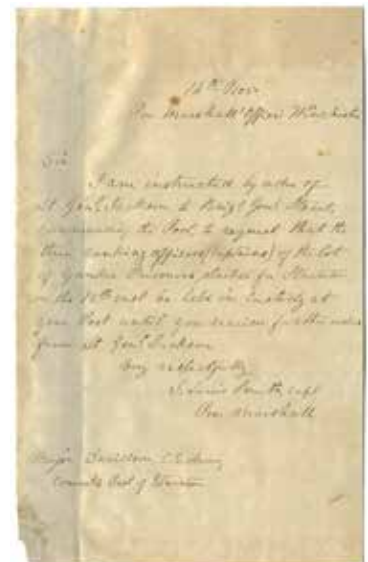 14th Nov
Pro Marshall Office Winchester
Sir
I am instructed by order of
Lt Genl Jackson to Brigd Genl
commanding the Post, to request that the
three ranking officers (Captains) of the lot
of Yankee Prisoners started for Staunton
on the 12th inst be held in custody at
your Post until you receive further orders
from Lt Genl Jackson
Very respectfully
capt
Pro Marshall
Major Davidson C.S. Army
Comdt Post of Staunton